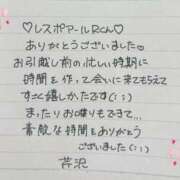 ♡レスポアールRくん♡
ありがとうございました♡
お引越し前の忙しい時期に
時間を作って会いに来てもらえて
すごく嬉しかったです(: ;)
まったりお喋りもできて
素敵な時間をありがとう
ございました(: ;)
芹沢